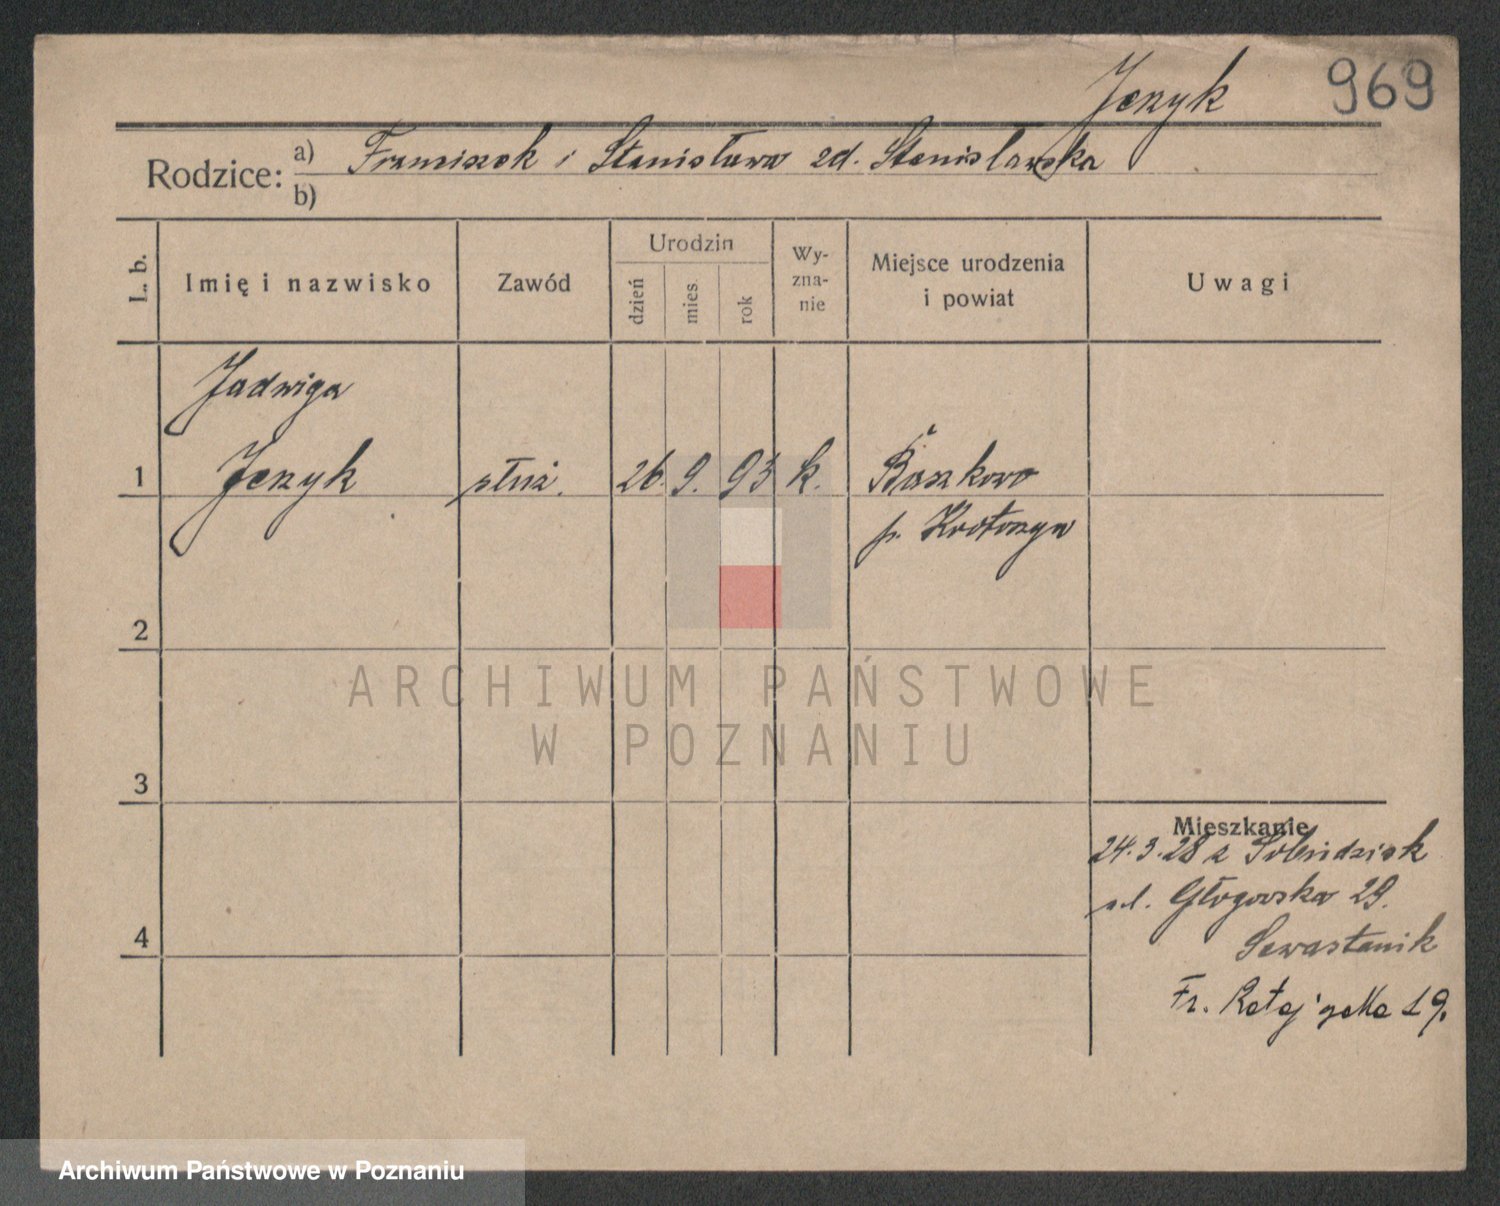 Jezyk 969
Rodzice: a) Franciszek i Stanisława zd. Stanisławska
b)
L. b. Imię i nazwisko Zawód Urodzin dzień mies. rok Wyznanie Miejsce urodzenia i powiat Uwagi
Jadwiga
1 Jezyk służ. 26. 9. 93 k. Baszkowo
p. Krotoszyn
2
ARCHIWUM PAŃSTWOWE
W POZNANIU
3
Mieszkanie
24.3.28 z
ul. Głogowska 29.
4 Sewastianik
Fr. Ratajczaka 19.
Archiwum Państwowe w Poznaniu